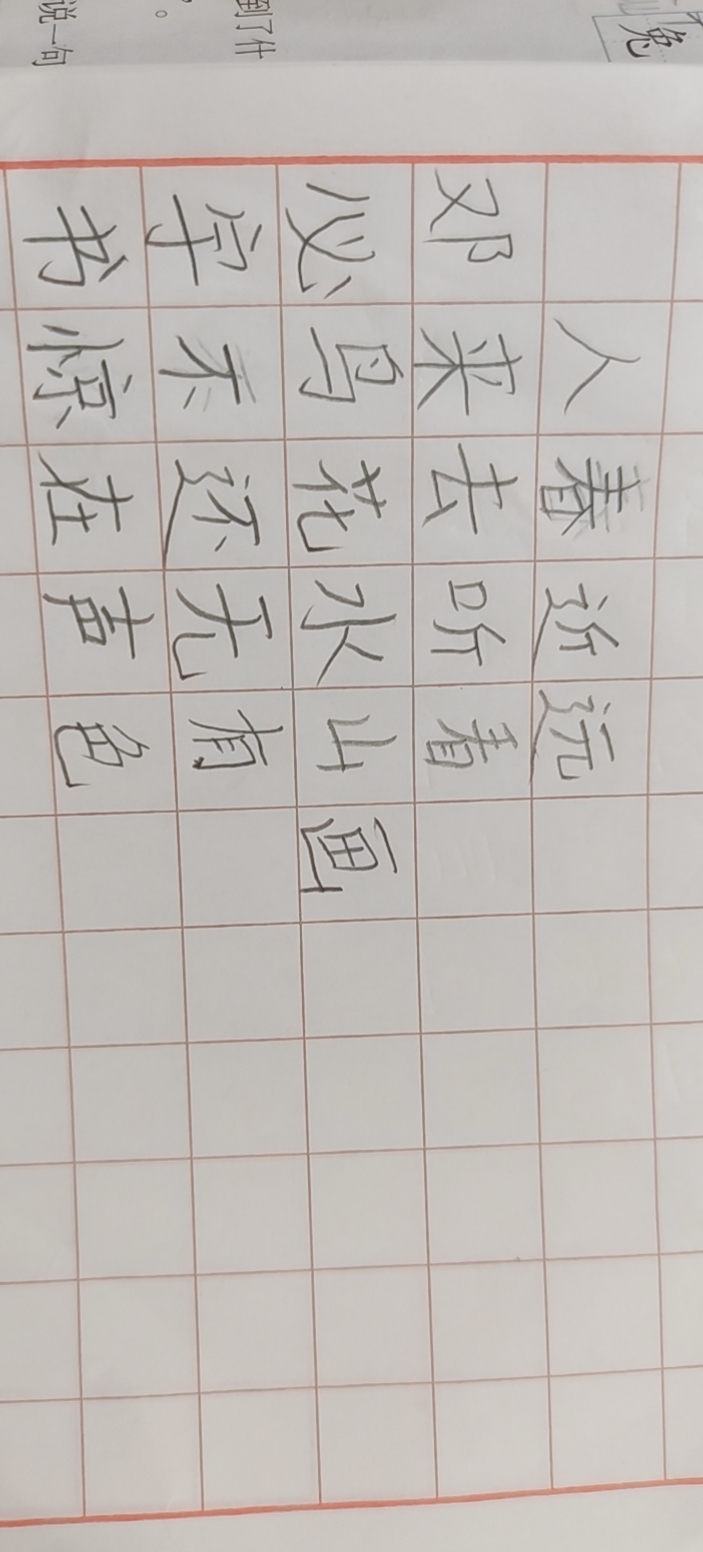 兔
到了什
。
说一句
画
远看山有色
近听水无声
春去花还在
人来鸟不惊
邓 字书